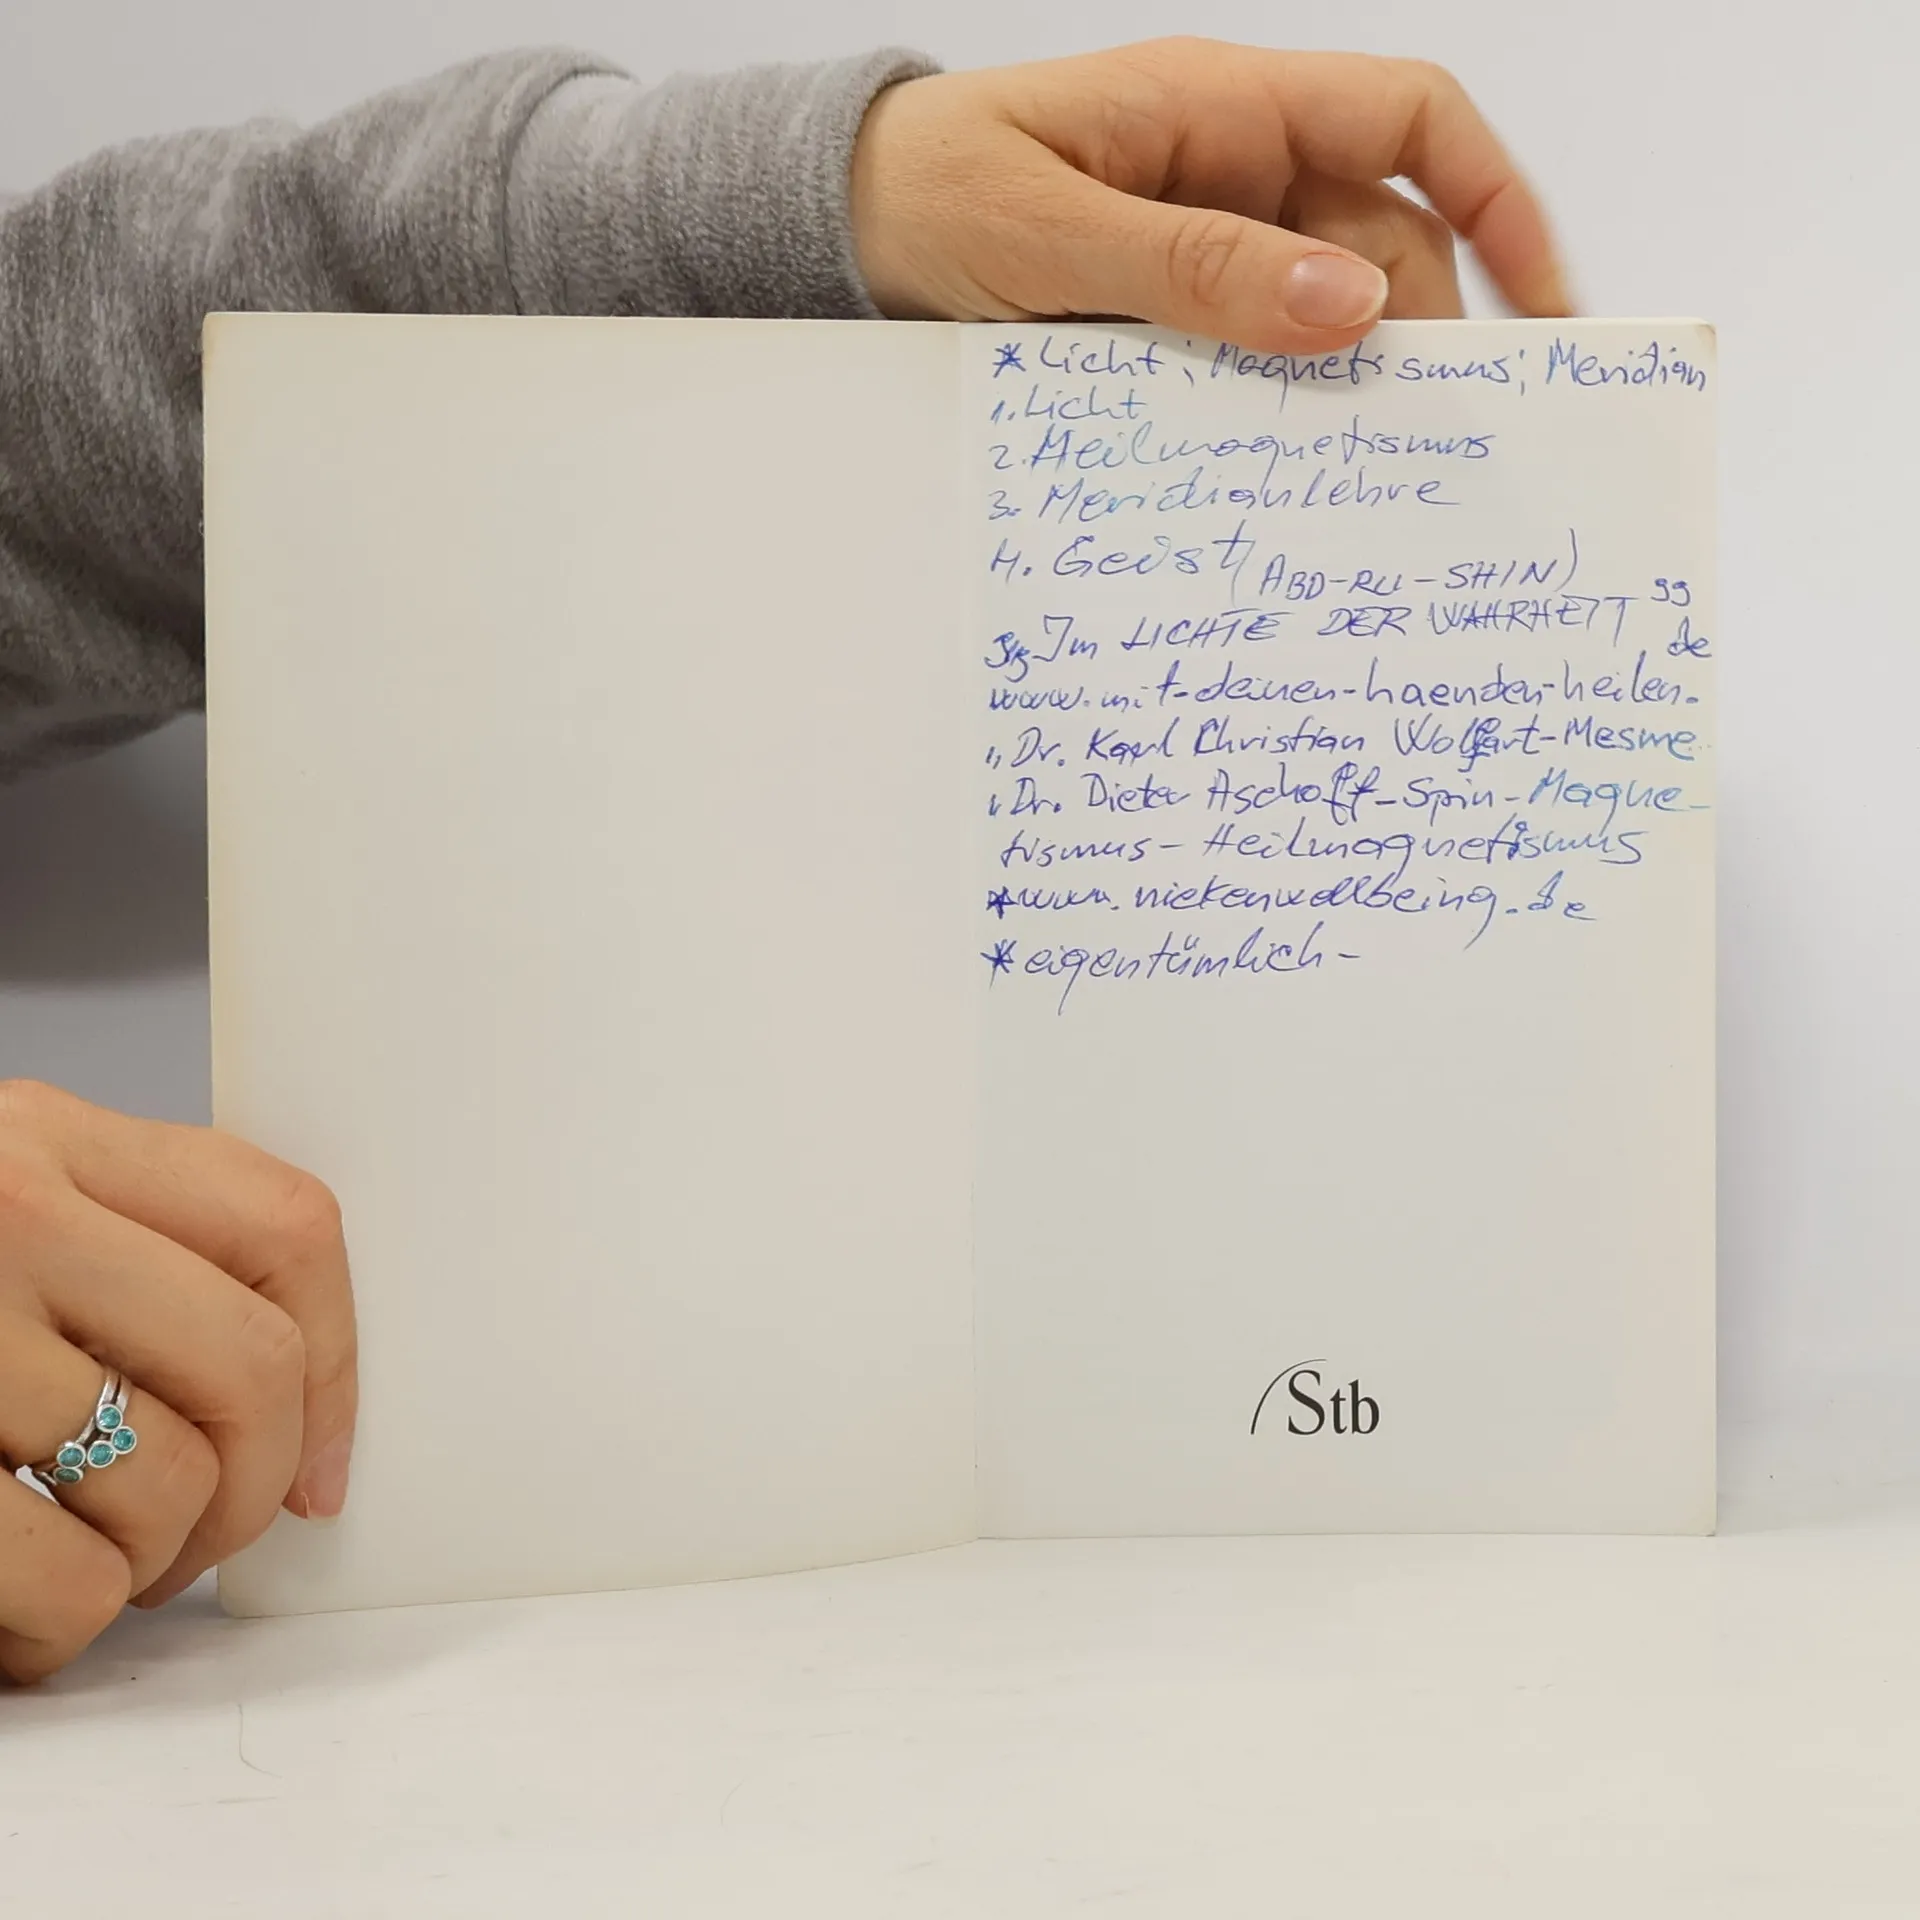 * Licht; Magnetismus; Meridian
1. Licht
2. Heilmagnetismus
3. Meridianlehre
4. Geist (ABD-RU-SHIN)
Im LICHTE DER WAHRHEIT "
www.mit-deinen-haenden-heilen.de
" Dr. Karl Christian Wolfart-Mesme
" Dr. Dieter Aschoff-Spin-Magne-
tismus-Heilmagnetismus
* www.niekenwellbeing.de
* eigentümlich-
Stb